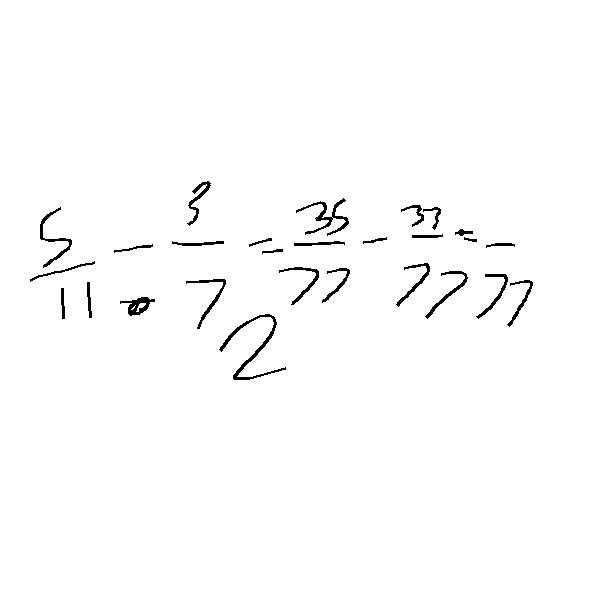 5/11 - 3/7 = 35/77 - 33/77 = /77
2